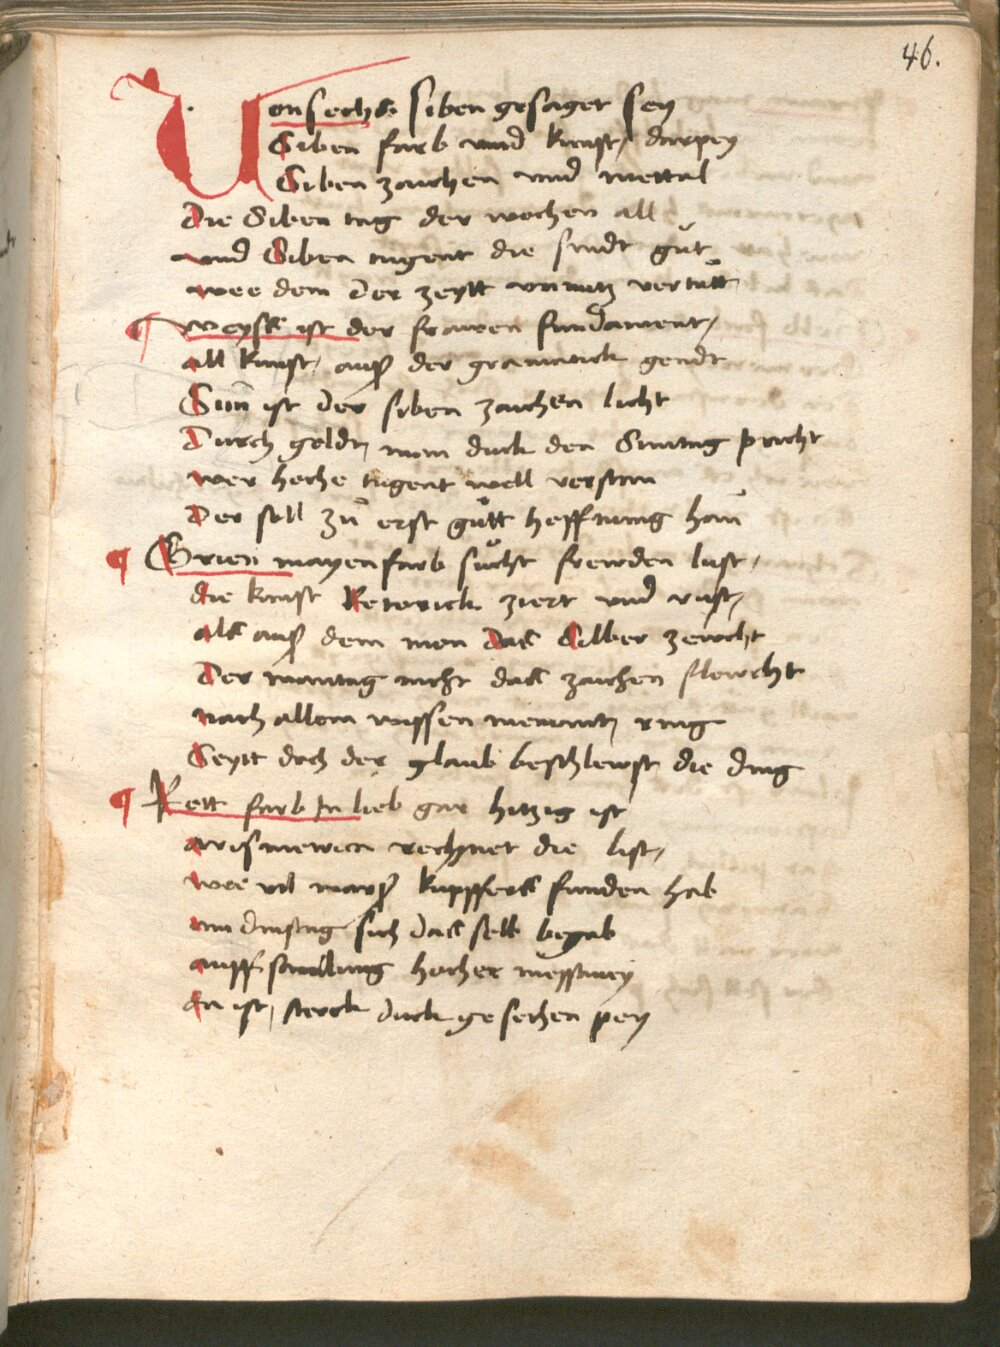 46.
Von sechs siben gesaget sey
Siben farb vnnd kunst, darpey
Siben zaichen vnd mettal
Die Siben tag der wochen all
vnd Siben tugent die sindt gůt
wee dem Der zeytt vnnutz vertůtt
Weyss ist der frawen fundament,
all kunst, auß der gramatick gendt
Sun̄ ist der siben zaichen licht
Durch goldt, nym duck den Suntag pricht
wer hoche tugent well verstan
Der soll zů erst gůtt hoffnung hon
Grien mayenfarb sůcht frewden lust,
die kunst Retorick ziert vnd rust,
als auß dem mon das Silber zewcht
Der montag nicht das zaichen flewcht
nach allem wissen niemantz ring
Seytt doch der glaub beschlewst die ding
Rett farb In lieb gar hitzig ist
arismetrica rechnet die list,
wie vil marß kupffers funden hab
am dinstag sich das selb begab
auff samlung hocher
An ist, sterck duck gesechen pey